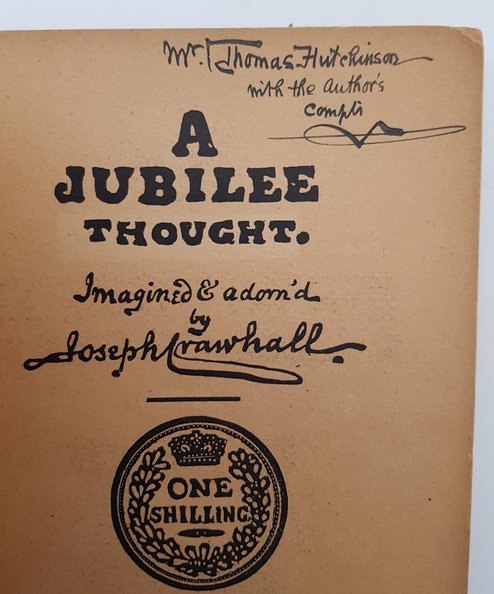 Mr. Thomas Hutchinson
with the Author's
Compts
A
JUBILEE
THOUGHT.
Imagined & adorn'd
by
Joseph Crawhall.
ONE
SHILLING